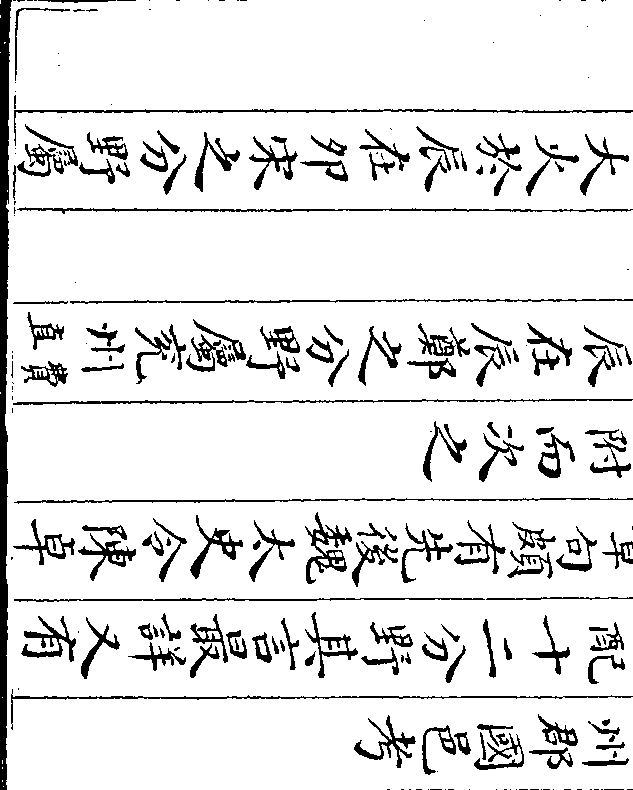 州郡國邑考
配十二分野其言最詳又有
章句頗有先後魏太史令陳卓
附而次之
辰在辰鄭之分野屬兗州費直
大火於辰在卯宋之分野屬